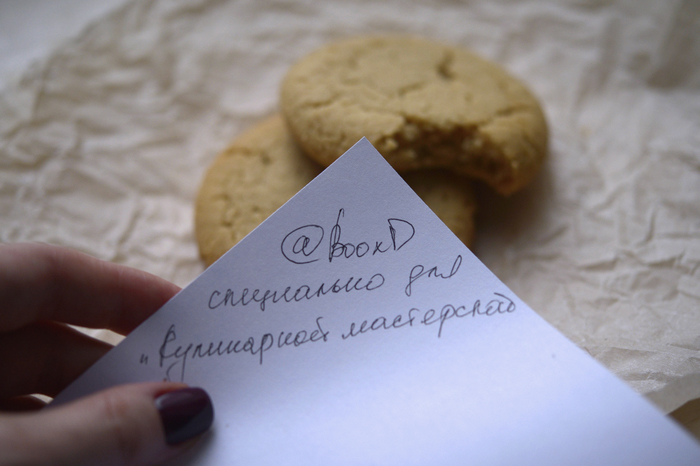 @BooxD
специально для
„Кулинарной мастерской